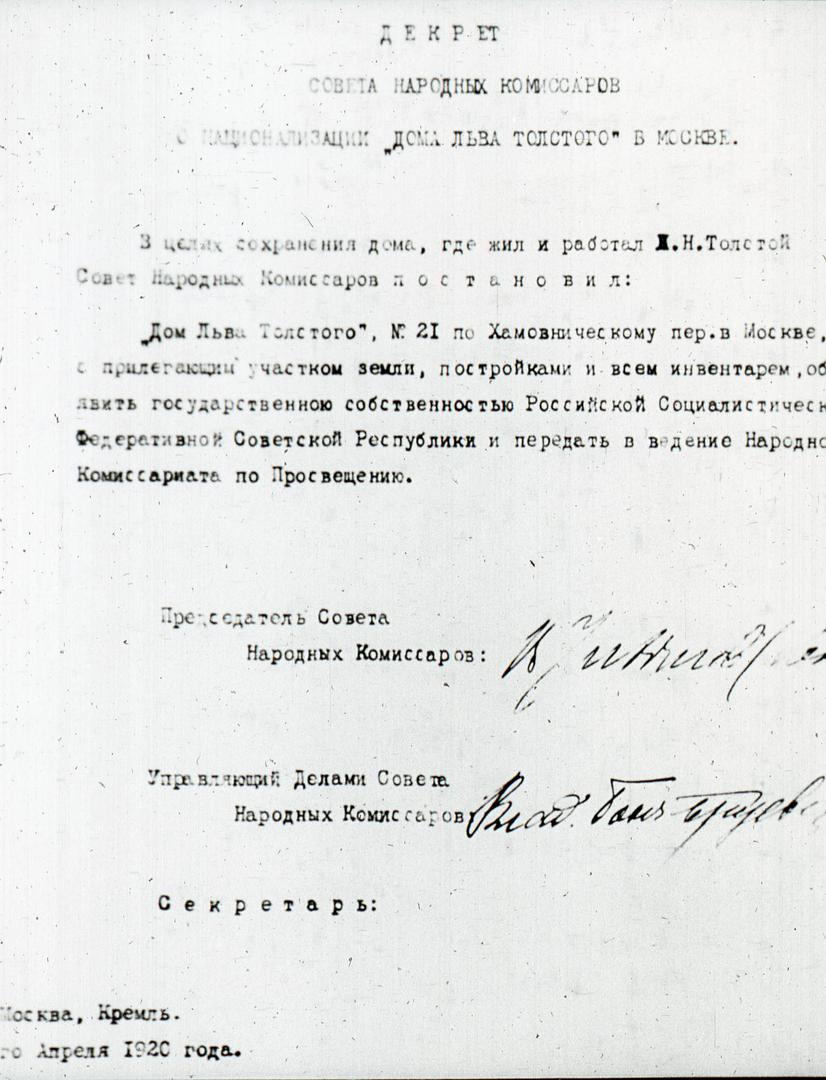 Д Е К Р ЕТ
СОВЕТА НАРОДНЫХ КОМИССАРОВ
О НАЦИОНАЛИЗАЦИИ „ДОМА ЛЬВА ТОЛСТОГО" В МОСКВЕ.
В целях сохранения дома, где жил и работал Л.Н.Толстой
Совет Народных Комиссаров п о с т а н о в и л:
„Дом Льва Толстого", № 21 по Хамовническому пер.в Москве,
с прилегающим участком земли, постройками и всем инвентарем,об
явить государственною собственностью Российской Социалистическ
Федеративной Советской Республики и передать в ведение Народно
Комиссариата по Просвещению.
Председатель Совета
Народных Комиссаров:
Управляющий Делами Совета
Народных Комиссаров
Влад. Бонч-Бруевич
С е к р е т а р ь:
Москва, Кремль.
го Апреля 1920 года.